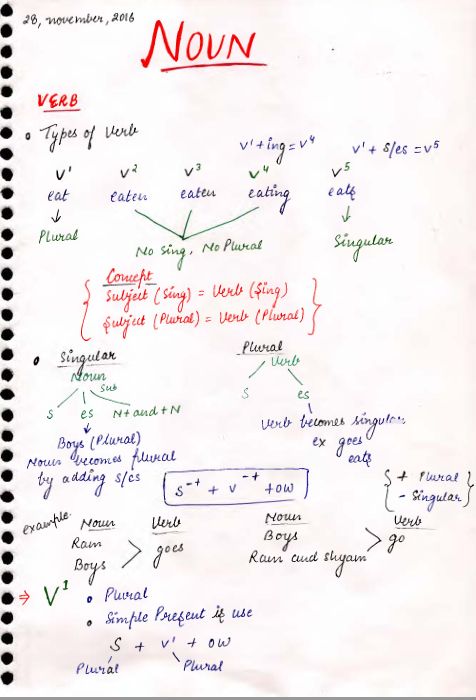 28, november, 2016
NOUN
VERB
Types of Verb
V¹+ing = V⁴ V¹ + s/es = V⁵
V¹ V² V³ V⁴ V⁵
eat eaten eaten eating eats
Plural
No sing, No Plural
Singular
Concept
Subject (Sing) = Verb (Sing)
Subject (Plural) = Verb (Plural)
Singular Plural
Noun Verb
Sub
S es N+and+N
S es
Boys (Plural)
Noun becomes plural
by adding s/es
Verb becomes singular
ex goes
eats
S⁻⁺ + V⁻⁺ + OW
+ Plural
- Singular
example.
Noun Verb Noun Verb
Ram Boys
goes go
Boys Ram and Shyam
⇒ V¹
Plural
Simple Present is use
S + V¹ + OW
Plural Plural